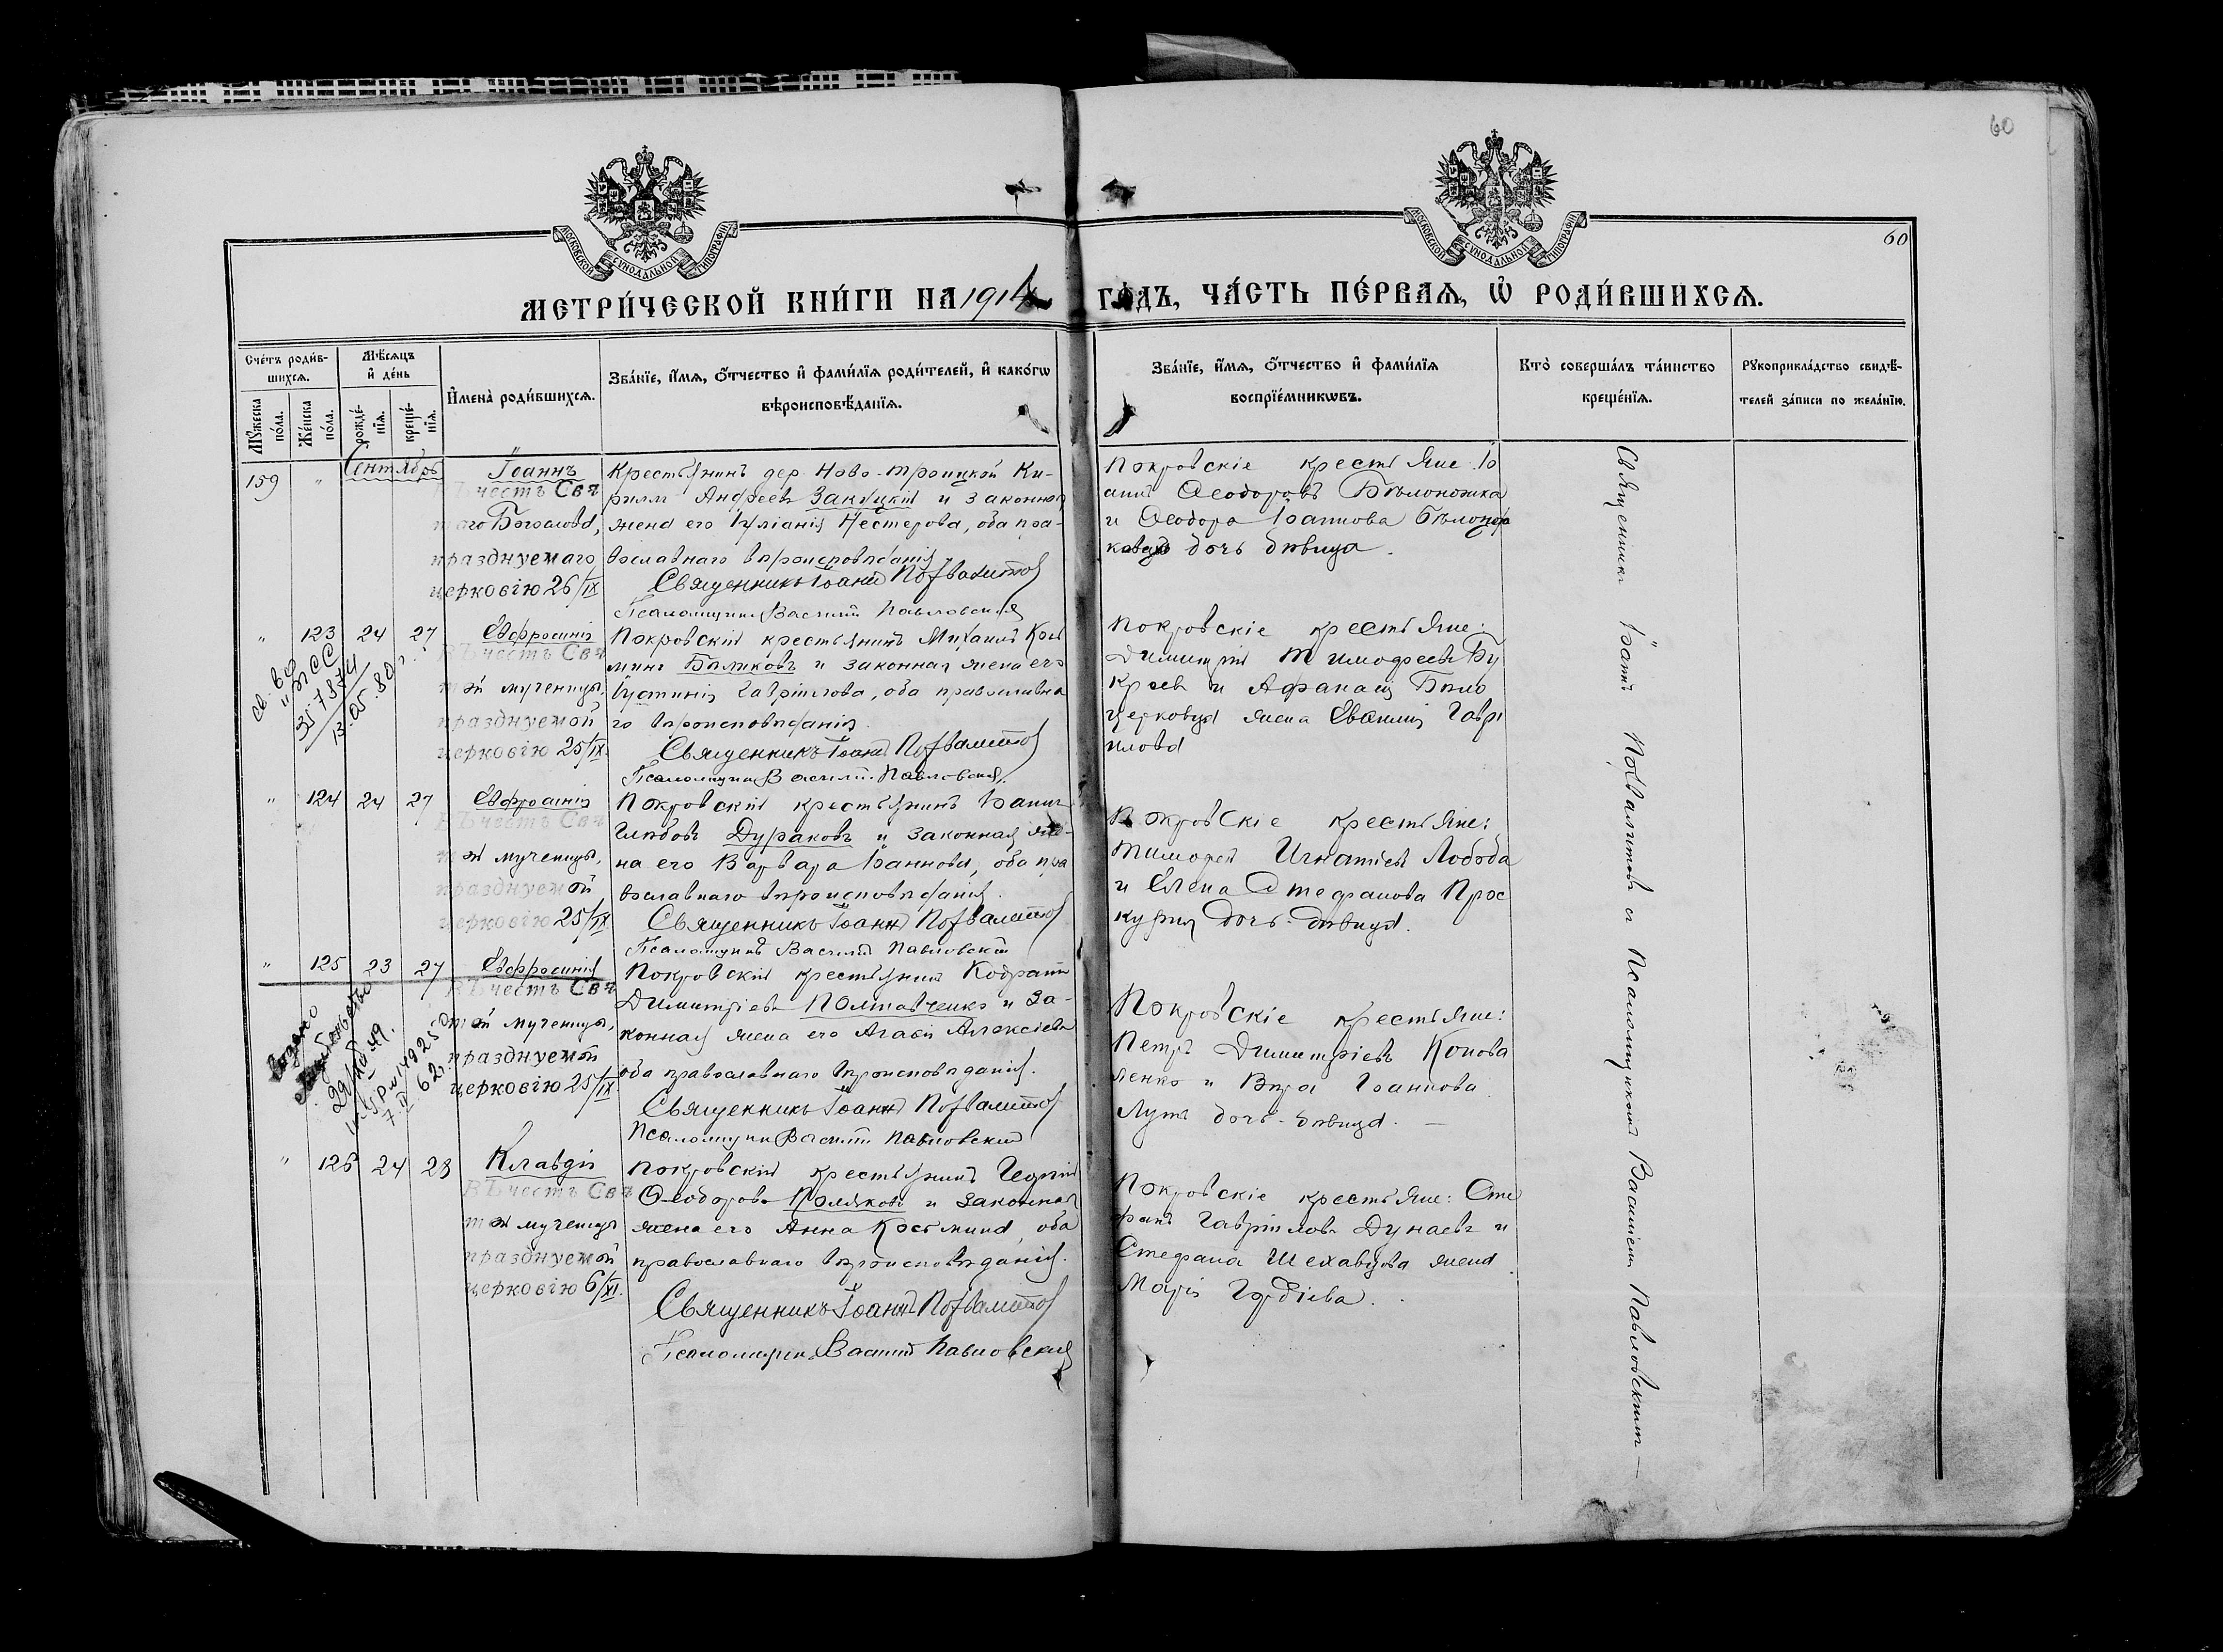 60
МОСКОВСКОЙ СУНОДАЛЬНОЙ ТИПОГРАФІИ
МОСКОВСКОЙ СУНОДАЛЬНОЙ ТИПОГРАФІИ
60
МЕТРИ́ЧЕСКОЙ КНИ́ГИ НА 1914 ГО́ДЪ, ЧА́СТЬ ПЕ́РВАѦ, Ѡ҆ РОДИ́ВШИХСѦ.
Сче́тъ роди́в-
шихсѧ.
Мꙋ́жеска по́ла.
Же́нска по́ла.
Мѣ́сѧцъ и҆ де́нь
рожде́-нїѧ.
креще́-нїѧ.
И҆мена̀ роди́вшихсѧ.
Зва́нїе, и҆́мѧ, ѻ҆́тчество и҆ фами́лїѧ роди́телей, и҆ како́гѡ
вѣроисповѣ́данїѧ.
Зва́нїе, и҆́мѧ, ѻ҆́тчество и҆ фами́лїѧ
воспрїе́мникѡвъ.
Кто̀ соверша́лъ та́инство
креще́нїѧ.
Рꙋкоприкла́дство свидѣ́-
телей за́писи по жела́нїю.
Сентябрь
159 "
Іоаннъ
Въ честь Свя
таго Богослова,
празднуемаго
церковію 26/IX
Крестьянинъ дер. Ново-Троицкой Ки-
риллъ Андреевъ Закуцкій и законная
жена его Іуліанія Нестерова, оба пра-
вославнаго вѣроисповѣданія
Священникъ Іоаннъ Похвалитовъ
Псаломщикъ Василій Павловскій
Покровскіе крестьяне: Іо
аннъ Ѳеодоровъ Бѣлоножка
и Ѳеодора Іоаннова
дочь дѣвица.
" 123 24 27
Евфросинія
Въ честь Свя
той мученицы,
празднуемой
церковію 25/IX.
Покровскій крестьянинъ Михаилъ Кось
минъ Бѣликовъ и законная жена его
Іустинія Гавріилова, оба православна
го вѣроисповѣданія.
Священникъ Іоаннъ Похвалитовъ
Псаломщикъ Василій Павловскій.
Покровскіе крестьяне:
Димитрій Тимофеевъ Бу
и Афанасія Бѣло
жена Гаврі
илова
13.05.80г.
" 124 24 27
Евфросинія
Въ честь Свя
той мученицы,
празднуемой
церковію 25/IX
Покровскій крестьянинъ Іоаннъ
Глѣбовъ Дураковъ и законная же-
на его Варвара Іоаннова, оба пра
вославнаго вѣроисповѣданія.
Священникъ Іоаннъ Похвалитовъ
Псаломщикъ Василій Павловскій
Покровскіе крестьяне:
Тимофей Игнатіевъ Лобода
и Елена Стефанова Прос
курня дочь-дѣвица.
" 125 23 27
Евфросинія
Въ честь Свя
той мученицы,
празднуемой
церковію 25/IX.
Покровскій крестьянинъ Кодратъ
Димитріевъ Полтавченко и за-
конная жена его Агафія Алексіева
оба православнаго вѣроисповѣданія.
Священникъ Іоаннъ Похвалитовъ
Псаломщикъ Василій Павловскій
Покровскіе крестьяне:
Петръ Димитріевъ Конова
ленко и Вѣра Іоаннова
Лутъ дочь-дѣвица. —
" 126 24 28
Клавдія
Въ честь Свя
той мученицы
празднуемой
церковію 6/XI.
Покровскій крестьянинъ Георгій
Ѳеодоровъ Поляковъ и законная
жена его Анна Косьмина, оба
православнаго вѣроисповѣданія.
Священникъ Іоаннъ Похвалитовъ
Псаломщикъ Василій Павловскій
Покровскіе крестьяне: Сте
фанъ Гавріиловъ Дунаевъ и
Стефана Шехавцова жена
Марія Гордіева.
Священникъ Іоаннъ Похвалитовъ съ Псаломщикомъ Василіемъ Павловскимъ —